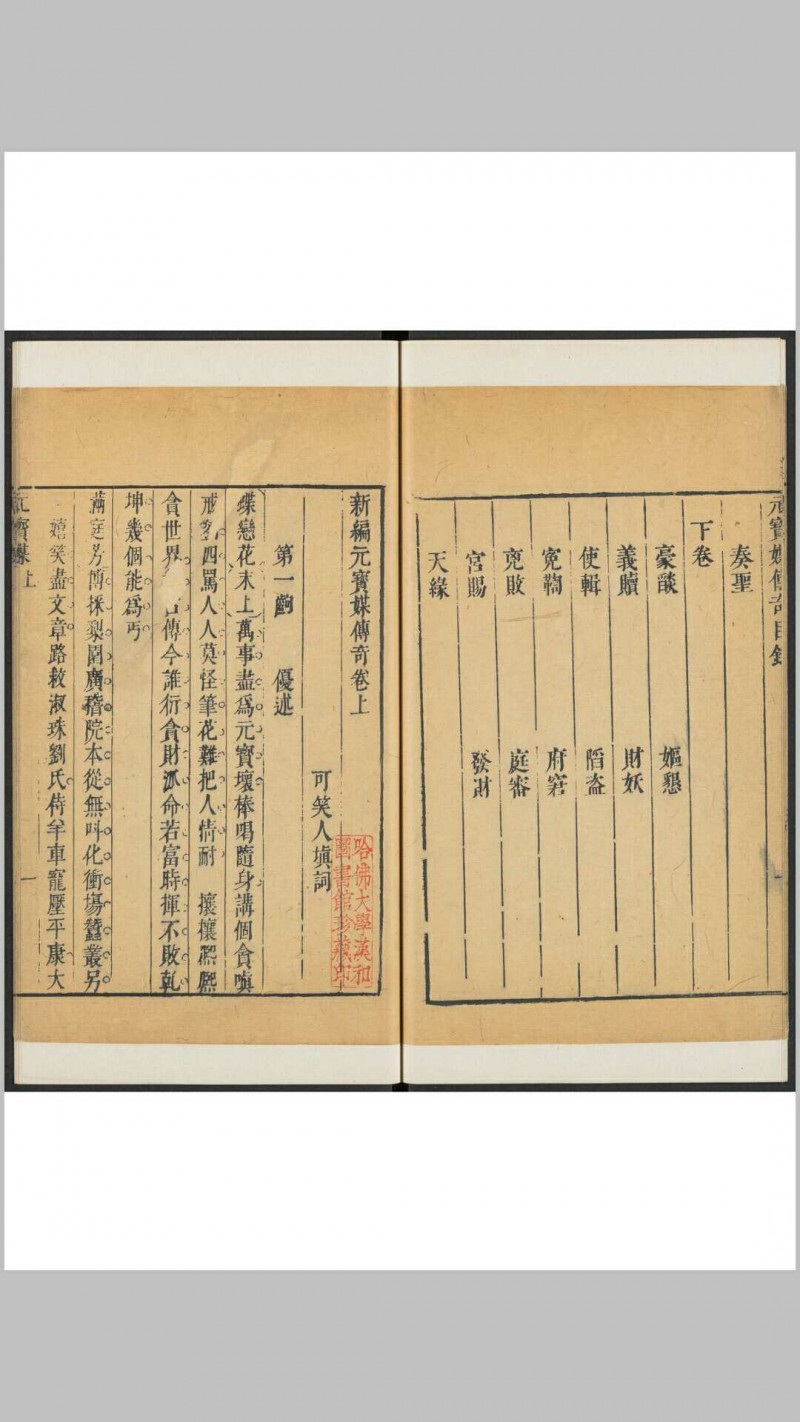 元寶媒傳奇目錄
奏聖
下卷
豪燄 嫗懇
義贖 財妖
使輯 賂盗
寃鞫 府窘
兇敗 庭審
宮賜 發財
天緣
一
新編元寶媒傳奇卷上
可笑人塡詞
第一齣 優述
蝶戀花末上萬事盡爲元寶壞棒喝隨身講個貪嗔
戒 四罵人人莫怪筆花難把人情耐 攘攘熙熙
貪世界 傳今誰衍貪財派命若富時揮不敗乾
坤幾個能爲丐
滿庭芳博採梨園廣稽院本從無叫化衝場蠶叢另
嬉笑盡文章路救淑珠劉氏侍羊車寵壓平康大
元寶媒上
一
哈佛大學漢和
圖書館珍藏印